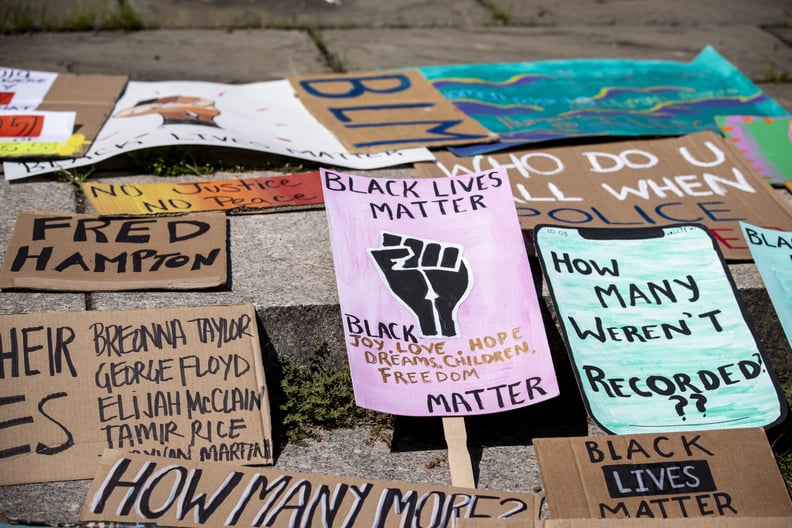 BLM
NO JUSTICE
NO Peace
WHO DO U
WHEN
POLICE
FRED
HAMPTON
BLACK LIVES
MATTER
BLACK
JOY, LOVE HOPE
DREAMS, CHILDREN,
FREEDOM
MATTER
10:03
HOW
MANY
WEREN'T
RECORDED?
??
HEIR
ES
BREONNA TAYLOR
GEORGE FLOYD
ELIJAH McCLAIN
TAMIR RICE
MARTIN
HOW MANY MORE?
BLACK
LIVES
MATTER